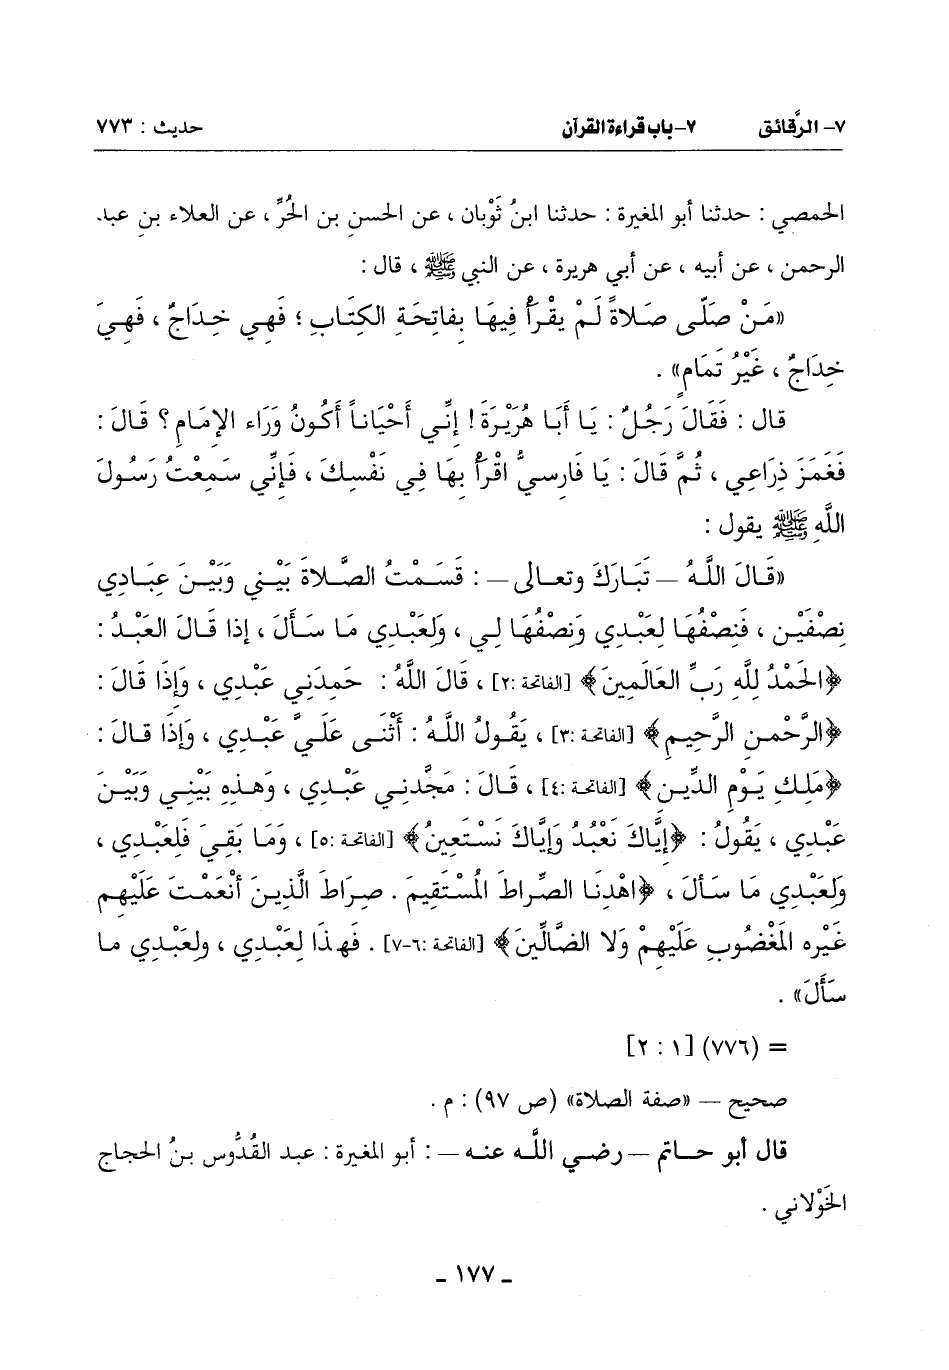 ٧- الرَّقائق ٧-باب قراءة القرآن حديث : ٧٧٣
الحمصي : حدثنا أبو المغيرة : حدثنا ابنُ ثَوْبان ، عن الحسنِ بن الحُرِّ ، عن العلاء بن عبد
الرحمن ، عن أبيه ، عن أبي هريرة ، عن النبي ﷺ ، قال :
«مَنْ صَلّى صَلاةً لَمْ يقْرَأْ فيهَا بِفاتِحَةِ الكِتَابِ ؛ فَهِي خِدَاجٌ ، فَهِيَ
خِدَاجٌ ، غَيْرُ تَمَامٍ» .
قال : فَقَالَ رَجُلٌ : يَا أَبَا هُرَيْرَةَ ! إنِّي أَحْيَاناً أَكُونُ وَرَاء الإِمَامِ ؟ قَالَ :
فَغَمَزَ ذِرَاعِي ، ثُمَّ قَالَ : يَا فَارِسيُّ اقْرأْ بِهَا فِي نَفْسِكَ ، فَإنِّي سَمِعْتُ رَسُولَ
اللَّهِ ﷺ يقول :
«قَالَ اللَّهُ – تَبَارَكَ وتعالى – : قَسَمْتُ الصَّلاةَ بَيْنِي وَبَيْنَ عِبَادِي
نِصْفَيْنِ ، فَنِصْفُهَا لِعَبْدِي وَنِصْفُهَا لِي ، وَلِعَبْدِي مَا سَأَلَ ، إذا قَالَ العَبْدُ :
﴿الحَمْدُ لِلَّهِ رَبِّ العَالَمِينَ﴾ [الفاتحة :٢] ، قَالَ اللَّهُ : حَمِدَنِي عَبْدِي ، وَإِذَا قَالَ :
﴿الرَّحْمنِ الرَّحِيمِ﴾ [الفاتحة :٣] ، يَقُولُ اللَّهُ : أَثْنَى عَلَيَّ عَبْدِي ، وَإِذَا قالَ :
﴿مَلِكِ يَوْمِ الدِّينِ﴾ [الفاتحة :٤] ، قَالَ : مَجَّدَنِي عَبْدِي ، وَهذِهِ بَيْنِي وَبَيْنَ
عَبْدِي ، يَقُولُ : ﴿إِيَّاكَ نَعْبُدُ وَإِيَّاكَ نَسْتَعِينُ﴾ [الفاتحة :٥] ، وَمَا بَقِيَ فَلِعَبْدِي ،
وَلِعَبْدِي مَا سَألَ ، ﴿اهْدِنَا الصِّراطَ المُسْتَقِيمَ . صِرَاطَ الَّذِينَ أَنْعَمْتَ عَلَيْهِم
غَيْرِه المَغْضُوبِ عَلَيْهِمْ وَلا الضَّالِّينَ﴾ [الفاتحة :٦-٧] . فَهذَا لِعَبْدِي ، ولِعَبْدِي مَا
سَأَلَ» .
= (٧٧٦) [١ : ٢]
صحيح – «صفة الصلاة» (ص ٩٧) : م .
قال أبو حاتم – رضي اللَّه عنه – : أبو المغيرة : عبد القُدُّوس بنُ الحجاج
الخَوْلاني .
ـ ١٧٧ ـ